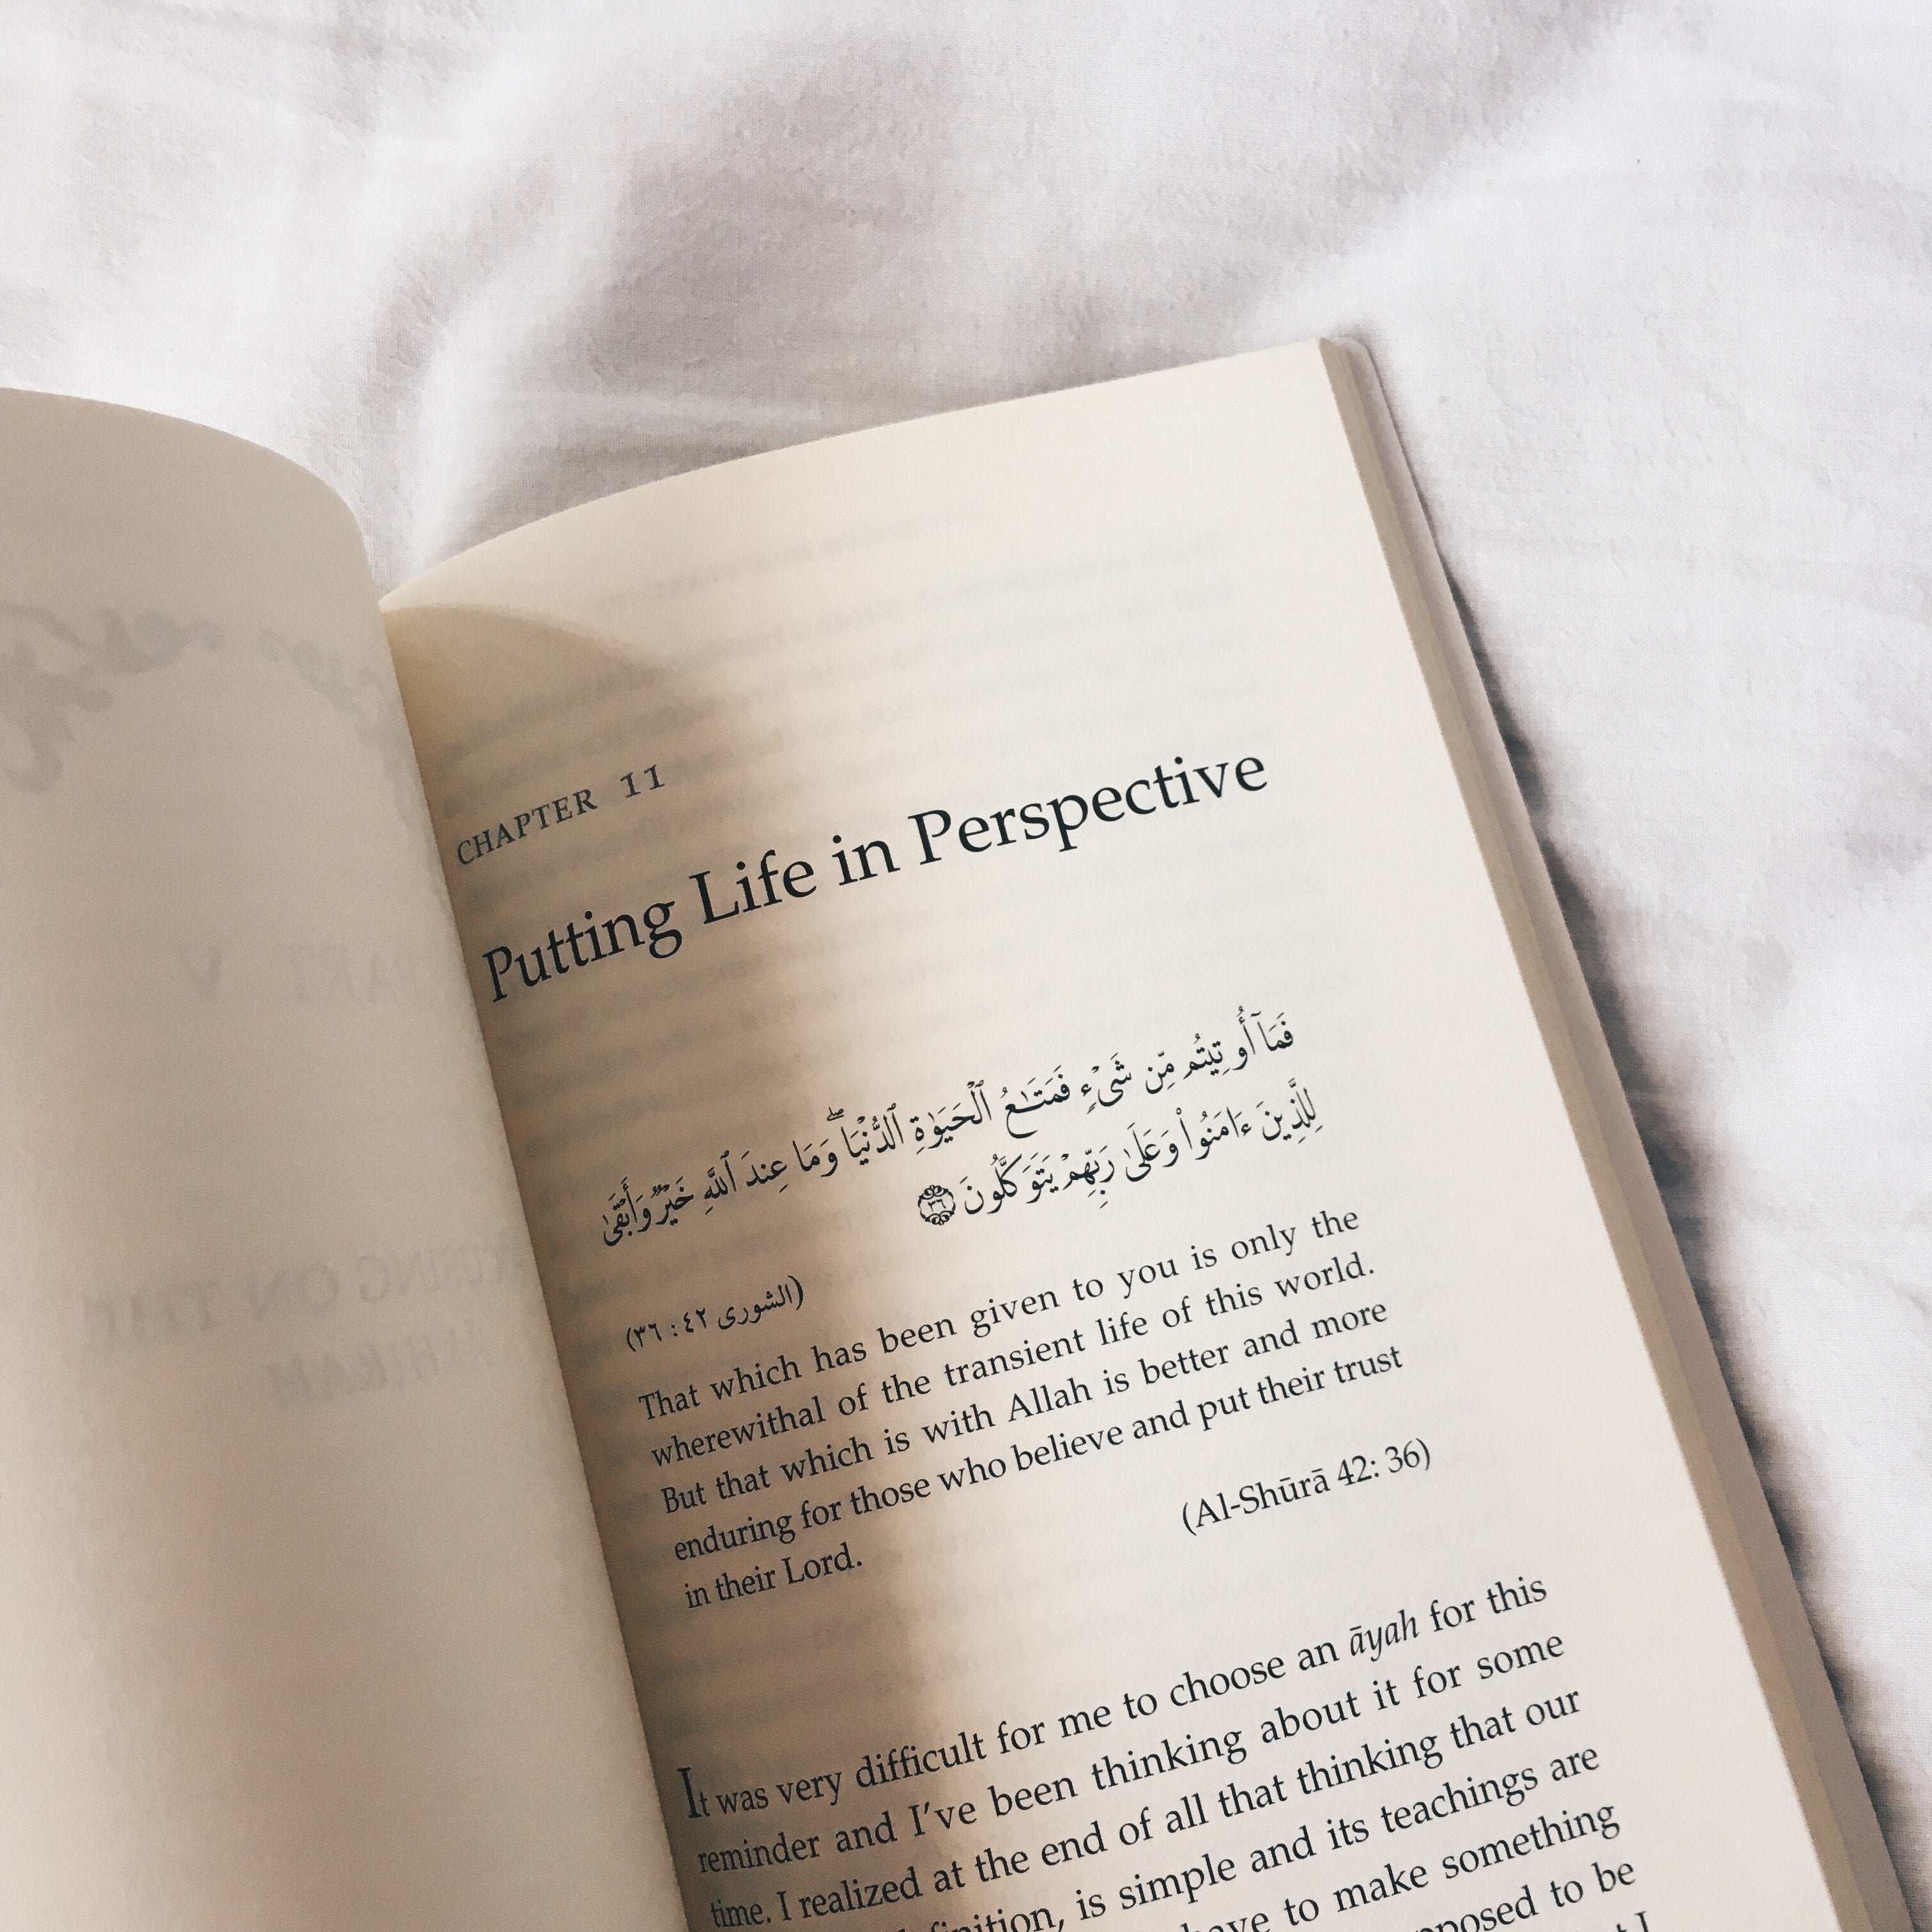 CHAPTER 11
Putting Life in Perspective
فَمَآ أُوتِيتُم مِّن شَىْءٍ فَمَتَـٰعُ ٱلْحَيَوٰةِ ٱلدُّنْيَا ۖ وَمَا عِندَ ٱللَّهِ خَيْرٌ وَأَبْقَىٰ
لِلَّذِينَ ءَامَنُوا۟ وَعَلَىٰ رَبِّهِمْ يَتَوَكَّلُونَ ٣٦
(الشورى ٤٢ : ٣٦)
That which has been given to you is only the
wherewithal of the transient life of this world.
But that which is with Allah is better and more
enduring for those who believe and put their trust
in their Lord.
(Al-Shūrā 42: 36)
It was very difficult for me to choose an āyah for this
reminder and I've been thinking about it for some
time. I realized at the end of all that thinking that our
is simple and its teachings are
have to make something
to be
I